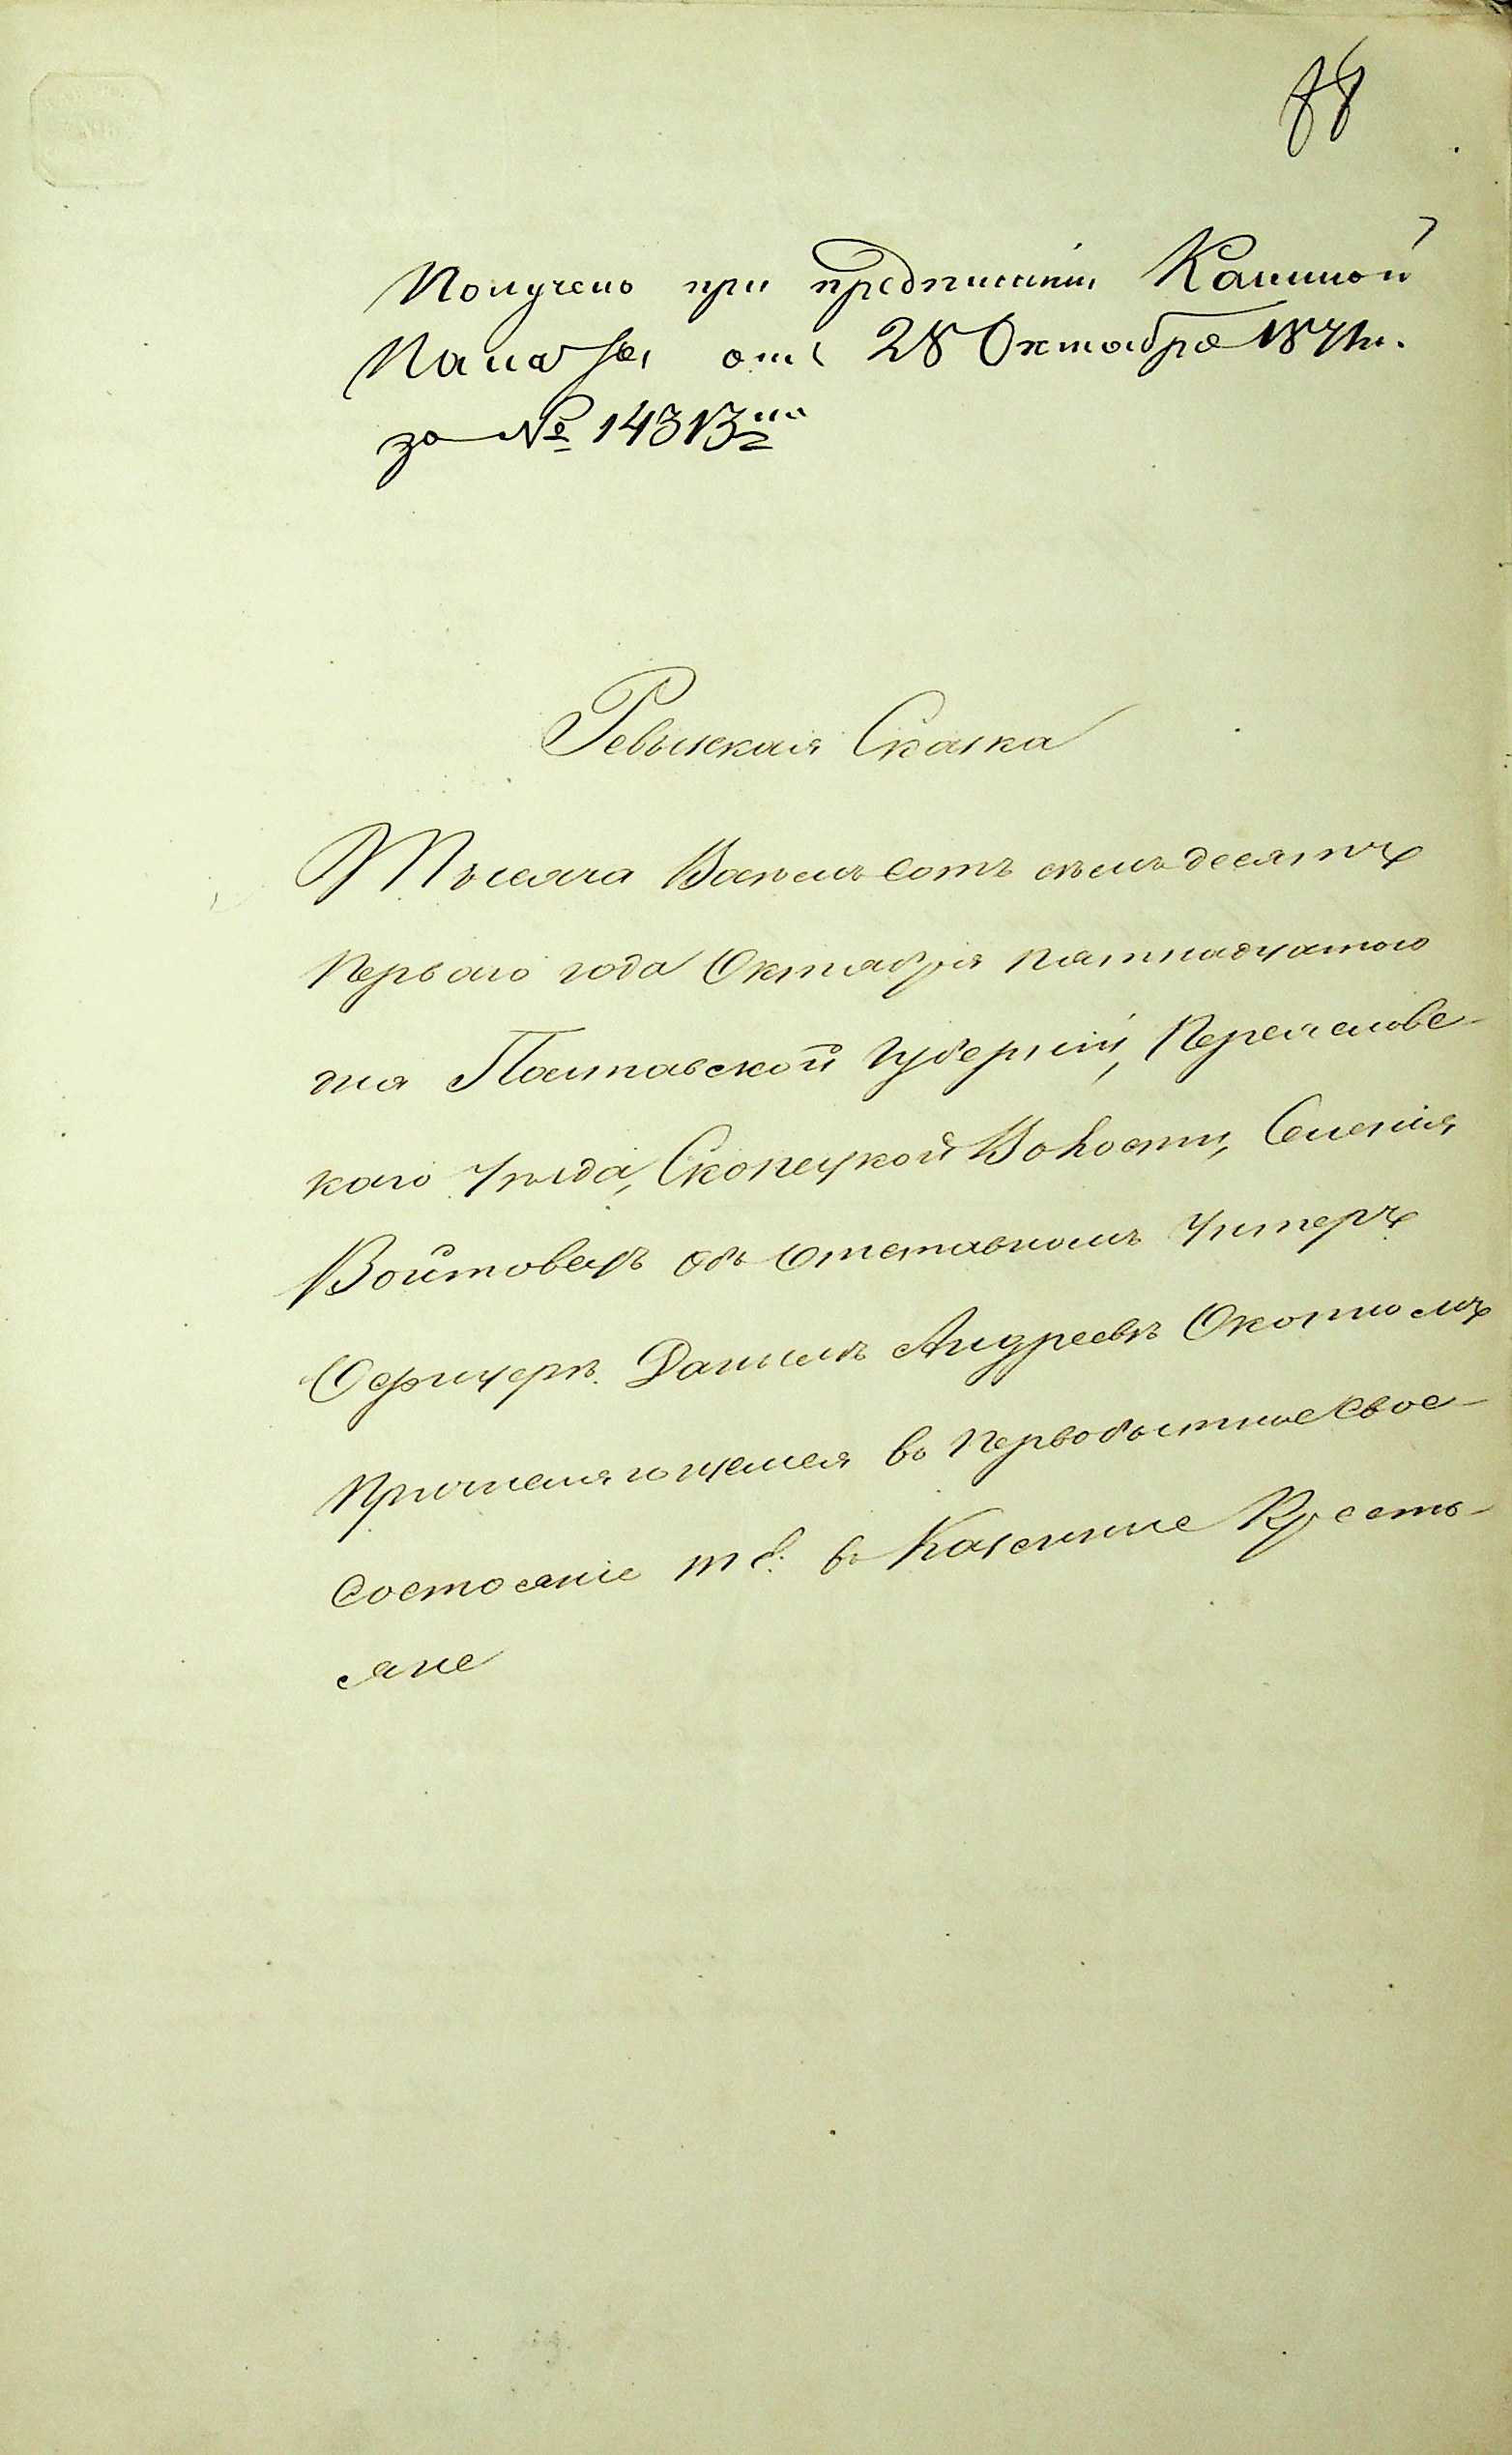 88
Получено при предписаніи Казенной
Палаты отъ 28 Октября 1871 г.
за № 14313мъ
Ревизская Сказка
Тысяча Восемъ сотъ семъдесятъ
Перваго года Октября пятнадцатого
дня Полтавской Губерніи, Переяславс-
каго Уезда, Скопецкой Волости, Селенія
Войтовецъ объ отставномъ Унтеръ
Офицерѣ Данилѣ Андреевѣ
Причисляющемся въ Первобытное свое
состояніе т. е. въ Казенные Кресть-
яне